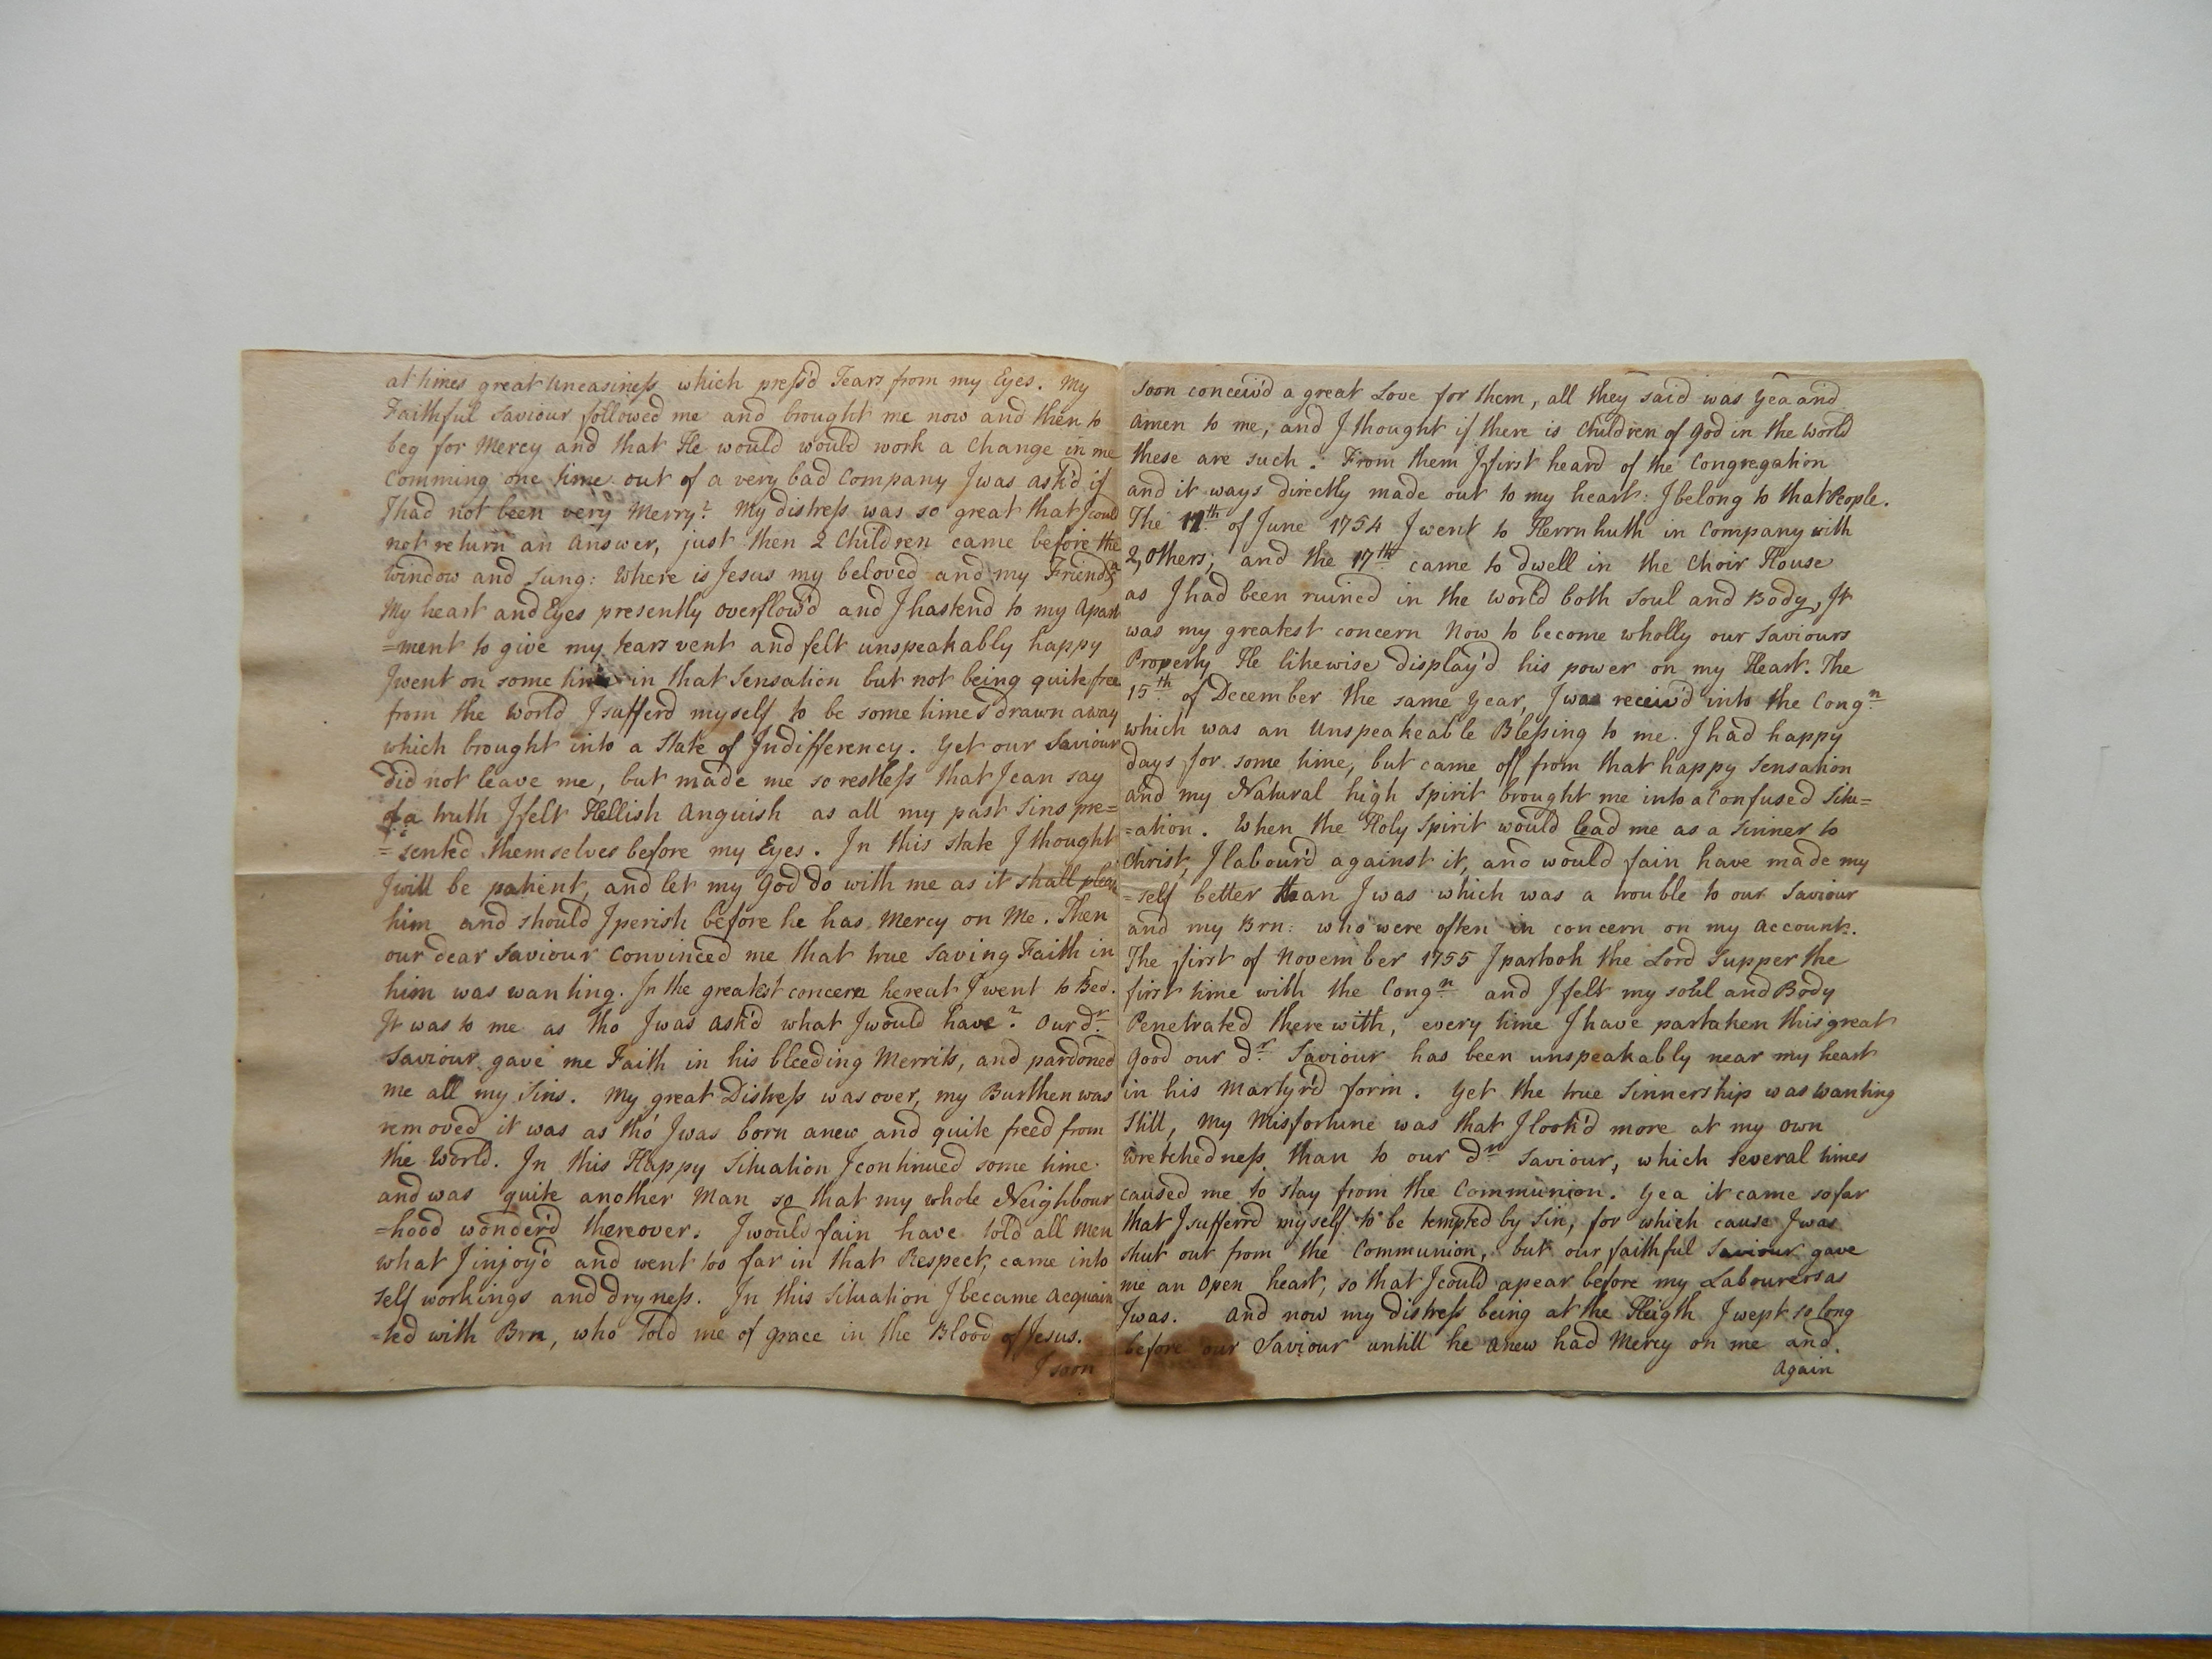 at times great Uneasiness which press'd Tears from my Eyes. My
Faithful Saviour followed me and brought me now and then to
beg for Mercy and that He would would work a Change in me
Comming one time out of a very bad Company I was ask'd if
I had not been very Merry? My distress was so great that I coud
not return an Answer, just then 2 Children came before the
Window and Sung: Where is Jesus my beloved and my Friend &c
My heart and Eyes presently overflow'd and I hastend to my Apart
=ment to give my tears vent and felt unspeakably happy
I went on some time in that Sensation but not being quite free
from the World I sufferd myself to be some times drawn away
which brought into a State of Indifferency. Yet our Saviour
did not leave me, but made me so restless that I can say
of a truth I felt Hellish Anguish as all my past Sins pre=
=sented themselves before my Eyes. In this state I thought
I will be patient, and let my God do with me as it shall pleas
him and should I perish before he has Mercy on Me. Then
our dear Saviour Convinced me that true Saving Faith in
him was wanting. In the greatest concern hereat I went to Bed.
It was to me as tho I was ask'd what I would have? Our dr.
Saviour gave me Faith in his bleeding Merrits, and pardoned
me all my Sins. My great Distress was over, my Burthen was
removed it was as tho' I was born anew and quite freed from
the World. In this Happy Situation I continued some time
and was quite another Man so that my whole Neighbour
=hood wonder'd thereover. I would fain have told all Men
what I injoy'd and went too far in that Respect, came into
self workings and dryness. In this Situation I became Acquain
=ted with Brn, who Told me of grace in the Blood of Jesus.
I soon
soon conceiv'd a great Love for them, all they said was Yea and
Amen to me, and I thought if there is Children of God in the World
these are such. From them I first heard of the Congregation
and it ways directly made out to my heart: I belong to that People.
The 12th of June 1754 I went to Herrnhuth in Company with
2, others, and the 17th came to dwell in the Choir House
as I had been ruined in the World both Soul and Body, It
was my greatest concern Now to become wholly our Saviours
Property He likewise display'd his power on my Heart. The
15th of December the same Year, I was receiv'd into the Congn
which was an Unspeakeable Blessing to me. I had happy
days for some time, but came off from that happy Sensation
and my Natural high Spirit brought me into a Confused Situ=
=ation. When the Holy Spirit would lead me as a Sinner to
Christ, I labour'd against it, and would fain have made my
=self better than I was which was a trouble to our Saviour
and my Brn: who were often in concern on my Account.
The first of November 1755 I partook the Lord Supper the
first time with the Congn and I felt my soul and Body
Penetrated therewith, every time I have partaken this great
Good our dr Saviour has been unspeakably near my heart
in his Martyr'd form. Yet the true Sinnership was wanting
Still, My Misfortune was that I look'd more at my own
Wretchedness than to our dr Saviour, which Several times
caused me to stay from the Communion. Yea it came so far
that I sufferrd myself to be tempted by Sin, for which cause I was
shut out from the Communion, but our faithful Saviour gave
me an Open heart, so that I could apear before my Labourers as
I was. And now my distress being at the Heigth I wept so long
before our Saviour untill he anew had Mercy on me and
Again